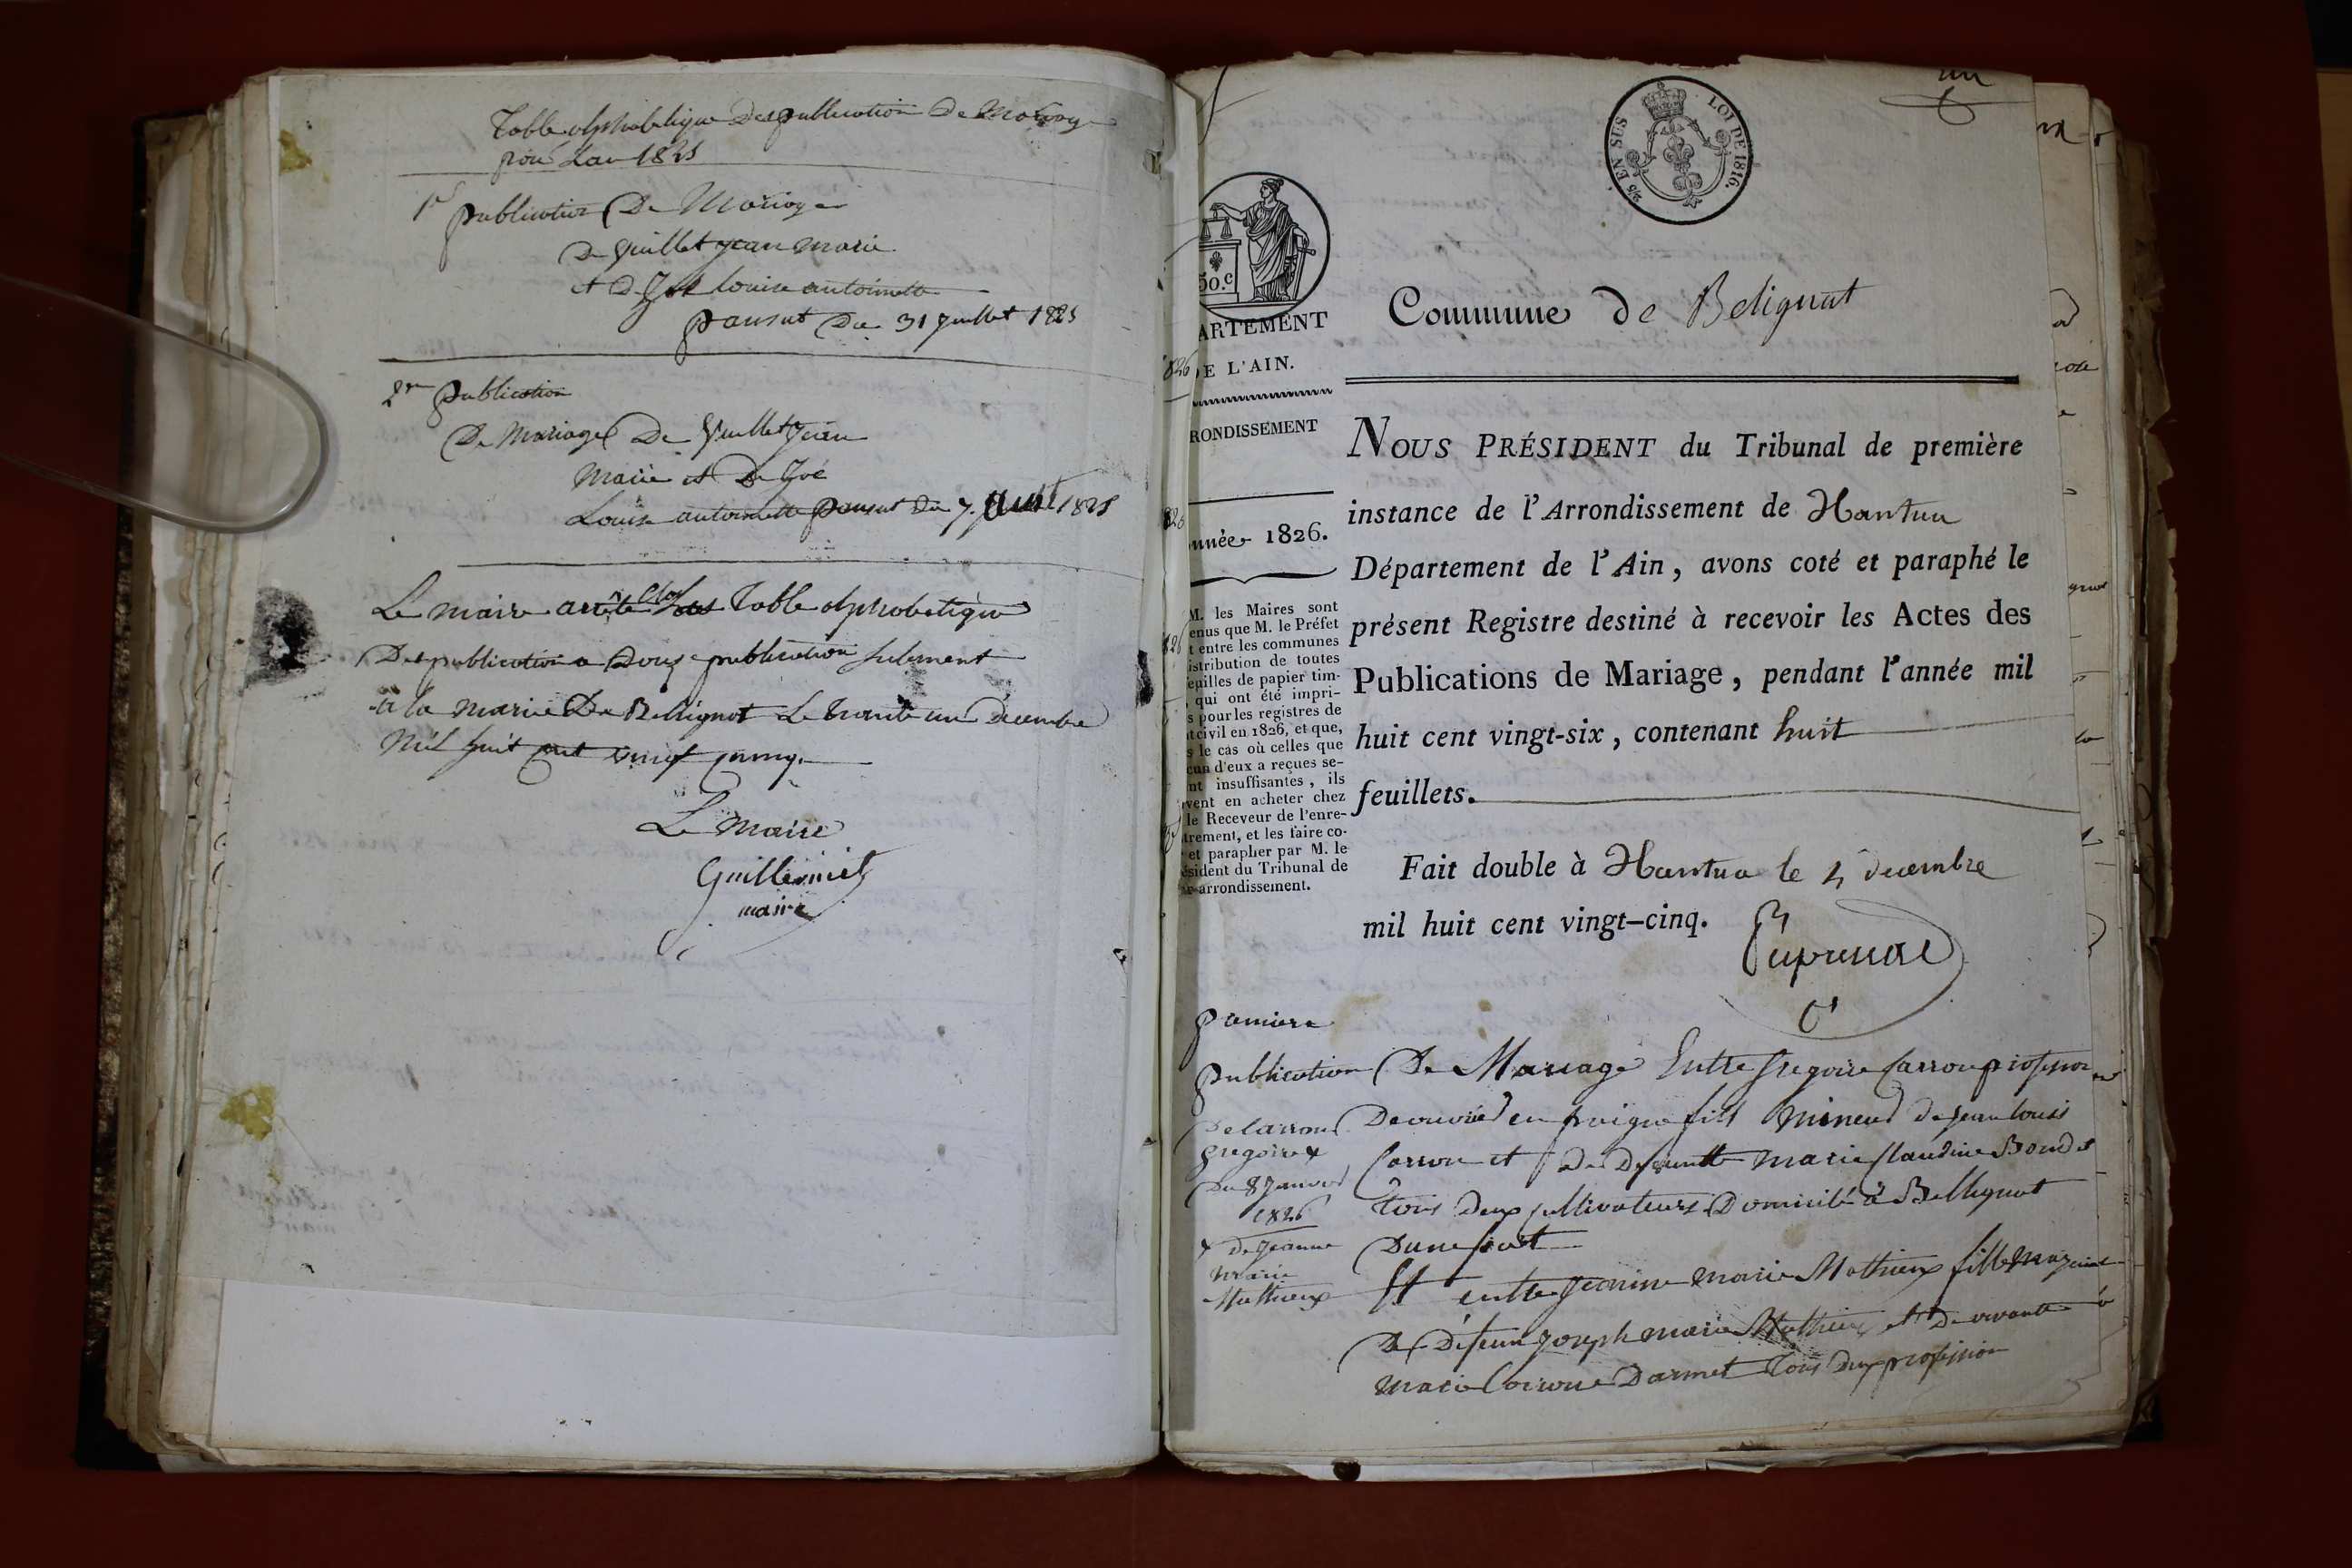 Table alphabetique Des publication De Mariage
pour Lan 1825
1e publication De Mariage
De Guillet Jean marie
et De Zoé louise antoinette
pansut Du 31 Juillet 1825
2me publication
De Mariage De Guillet Jean
Marie et De Zoé
Louise antoinette pansut Du 7. Aout 1825
Le maire arrete clos Table alphabetique
Des publication a Douze publication sulement
a la mairie De Bellignat Le trente un Decembre
Mil huit cent vingt cinq.
Le Maire
Guillermet
maire
un
2/5 EN SUS
LOI DE 1816.
50.c
ARTEMENT
DE L'AIN.
RONDISSEMENT
nnée 1826.
M. les Maires sont
enus que M. le Préfet
t entre les communes
istribution de toutes
euilles de papier tim-
, qui ont été impri-
s pour les registres de
t civil en 1826, et que,
s le cas où celles que
cun d'eux a reçues se-
nt insuffisantes, ils
vent en acheter chez
le Receveur de l'enre-
trement, et les faire co-
et parapher par M. le
ésident du Tribunal de
arrondissement.
Commune de Belignat
NOUS PRÉSIDENT du Tribunal de première
instance de l'Arrondissement de Nantua
Département de l'Ain, avons coté et paraphé le
présent Registre destiné à recevoir les Actes des
Publications de Mariage, pendant l'année mil
huit cent vingt-six, contenant huit
feuillets.
Fait double à Nantua le 4 decembre
mil huit cent vingt-cinq.
premiere
publication
De Carron
gregoire +
Du 8 Janvier
1826
+ de Jeanne
Marie
Mathieux
De Mariage Entre Gregoire Carron profession
De ouvrié en peigne fils Mineur de Jean louis
Carron et De Defuntte Marie Claudine Bondet
tous deux cultivateurs Domicilé a Bellignat
Dune part
Et entre Jeanne Marie Mathieux fille Majeure
De Defeun Joseph marie Mathieux et De vivante
Marie Carron Darmet tous deux profession